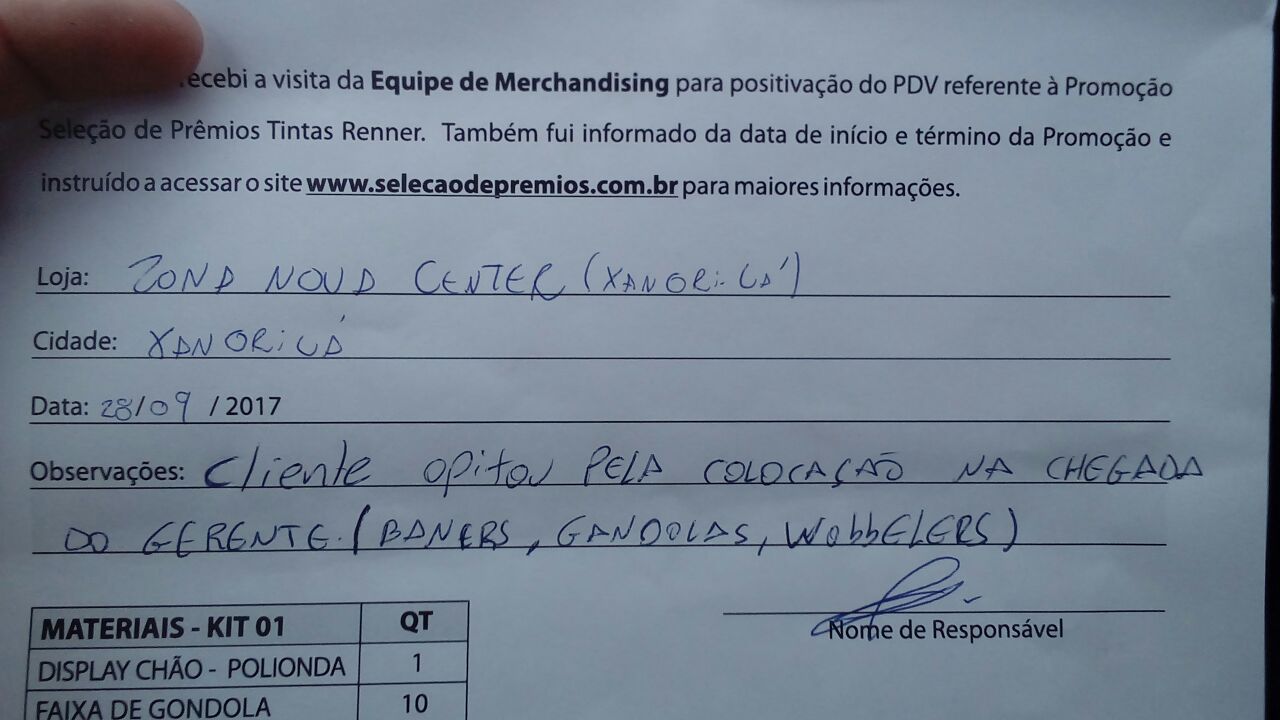 ecebi a visita da Equipe de Merchandising para positivação do PDV referente à Promoção
Seleção de Prêmios Tintas Renner. Também fui informado da data de início e término da Promoção e
instruído a acessar o site www.selecaodepremios.com.br para maiores informações.
Loja: ZONA NOVA CENTER (XANGRI-LÁ)
Cidade: XANGRI LÁ
Data: 28/09 / 2017
Observações: Cliente opitou PELA COLOCAÇÃO NA CHEGADA
DO GERENTE. (BANERS, GANDOLAS, WobbELERS)
Nome de Responsável
MATERIAIS - KIT 01 QT
DISPLAY CHÃO - POLIONDA 1
FAIXA DE GONDOLA 10